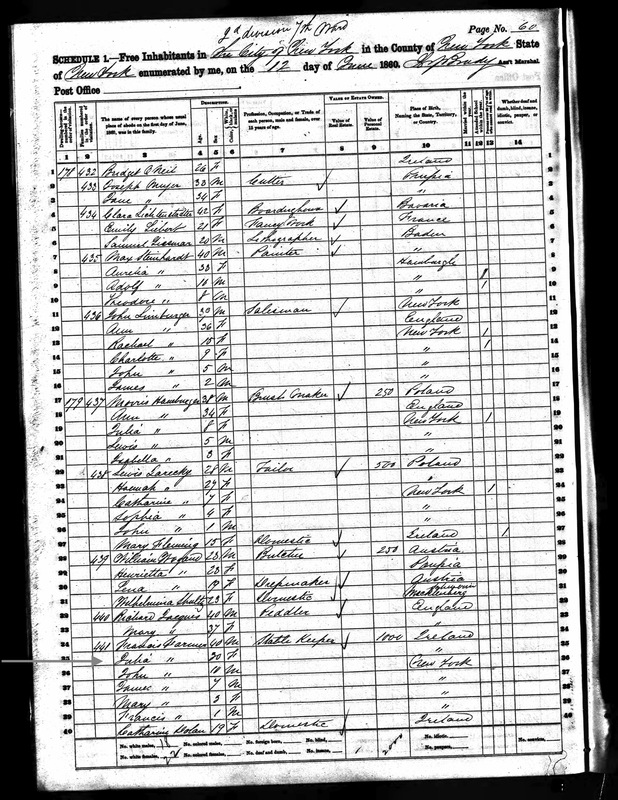 2d division 7th Ward
Page No. 60
SCHEDULE 1.—Free Inhabitants in the City of New York in the County of New York State
of New York enumerated by me, on the 12 day of June 1860. Ass't Marshal.
Post Office
DESCRIPTION. VALUE OF ESTATE OWNED.
The name of every person whose usual place of abode on the first day of June, 1860, was in this family.
Age. Sex.
Profession, Occupation, or Trade of each person, male and female, over 15 years of age.
Value of Real Estate. Value of Personal Estate.
Place of Birth, Naming the State, Territory, or Country.
Whether deaf and dumb, blind, insane, idiotic, pauper, or convict.
1 2 3 4 5 6 7 8 9 10 11 12 13 14
1 178 432 Bridget O Neil 26 F Ireland
2 433 Joseph Meyer 33 M Cutter
3 Jane " 34 F "
4 434 Clara 42 F Boardinghouse Bavaria
5 Emily 21 F Fancy Work France
6 Samuel 20 M Lithographer Baden
7 435 Max Steinhardt 40 M Painter "
8 Aurelia " 33 F Hamburgh
9 Adolf " 10 M " 1
10 Theodore " 8 M " 1
11 436 John Limburger 30 M Salesman New York
12 Ann " 36 F England
13 Rachael " 15 F New York 1
14 Charlotte " 9 F " 1
15 John " 5 M "
16 James " 2 M "
17 179 437 Morris Hamburger 38 M Brush Maker 250 Poland
18 Ann " 34 F England
19 Julia " 8 F New York 1
20 Lewis " 5 M "
21 Isabella " 3 F "
22 438 Lewis 28 M Tailor 500 Poland
23 Hannah " 27 F "
24 Catharine " 7 F New York 1
25 Sophia " 4 F "
26 John " 1 M "
27 Mary Fleming 15 F Domestic Ireland 1
28 439 William 23 M Butcher 250 Austria
29 Henrietta " 23 F
30 Lena " 19 F Dressmaker Austria
31 Wilhelmina Shultz 23 F Domestic Mecklenberg
32 440 Richard Jacques 40 M Peddler England
33 Mary " 37 F "
34 441 Francis Farmer 40 M Stable Keeper 1000 Ireland
35 Julia " 30 F "
36 John " 10 M New York
37 James " 7 M "
38 Mary " 3 F "
39 Francis " 1 M "
40 Catharine Dolan 19 F Domestic Ireland
No. white males, No. colored males, No. foreign born, No. blind, No. idiotic, No. convicts,
No. white females, No. colored females, No. deaf and dumb, No. insane, No. paupers,